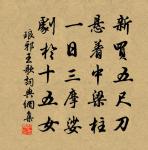 新買五尺刀
悬着中梁柱
一日三摩娑
劇於十五女
琅邪王歌詞典網集